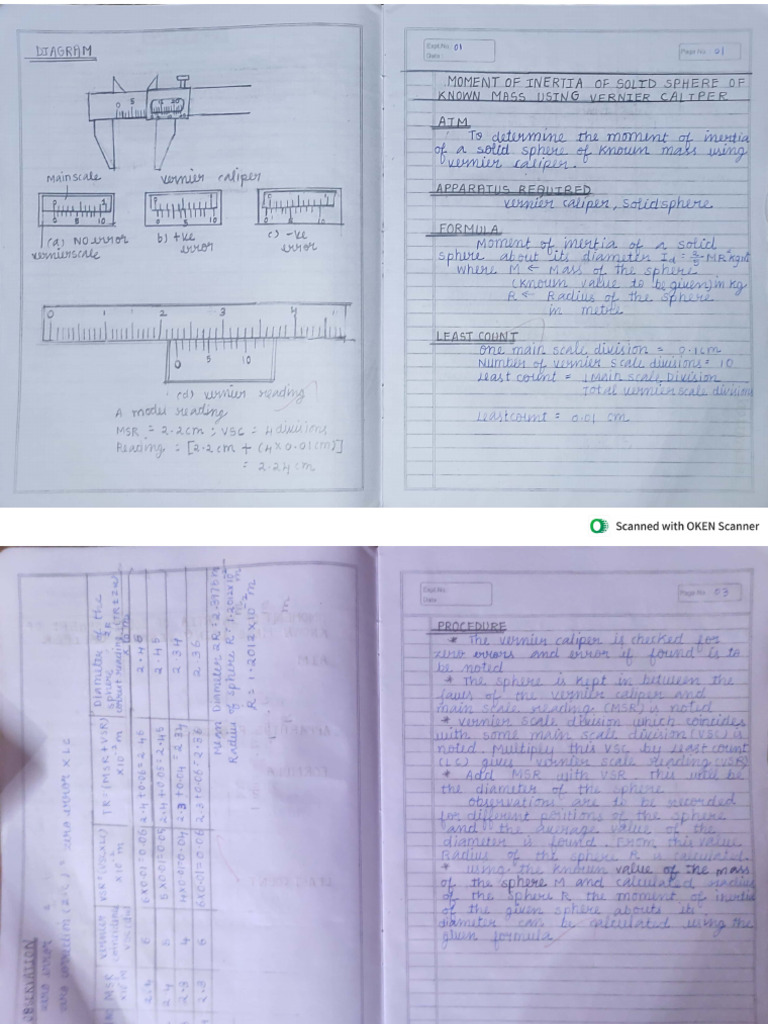 DIAGRAM
0 5
Mainscale
vernier caliper
0 5 10
0 5 10
0 10
(a) NO error
vernierscale
b) +ve
error
c) -ve
error
0 1 2 3 4
0 5 10
(d) vernier reading
A model reading
MSR = 2.2cm ; VSC = 4 divisions
Reading = [2.2cm + (4x0.01cm)]
= 2.24cm
Expt.No. 01
Date :
Page No. 01
MOMENT OF INERTIA OF SOLID SPHERE OF
KNOWN MASS USING VERNIER CALIPER
AIM
To determine the moment of inertia
of a solid sphere of known mass using
vernier caliper.
APPARATUS REQUIRED
vernier caliper, solid sphere
FORMULA
Moment of inertia of a solid
sphere about its diameter Id = 2/5 MR² kgm²
where M ← Mass of the sphere
(known value to be given) in kg
R ← Radius of the sphere
in metre
LEAST COUNT
One main scale division = 0.1cm
Number of vernier scale divisions = 10
Least count = 1 Main scale Division
Total vernier scale divisions
Least count = 0.01 cm
Scanned with OKEN Scanner
OBSERVATION
zero error =
zero correction (ZC) = zero error x LC
MSR
VSR = (VSC x LC)
x10⁻² m
TR = (MSR + VSR)
x10⁻² m
Diameter of the
sphere 2R
2.4 6 6x0.01=0.06 2.4+0.06=2.46 2.46
2.4 5 2.45
2.3 4 4x0.01=0.04 2.3+0.04=2.34 2.34
2.3 6 6x0.01=0.06 2.3+0.06=2.36 2.36
Mean Diameter 2R =
Radius of sphere R =
Expt.No.
Date :
Page No. 03
PROCEDURE
* The vernier caliper is checked for
zero errors and error if found is to
be noted
* The sphere is kept in between the
faws of the vernier caliper and
main scale reading (MSR) is noted
* vernier scale division which coincides
with some main scale division (VSC) is
noted. Multiply this VSC by least count
(LC) gives vernier scale reading (VSR)
* Add MSR with VSR, this will be
the diameter of the sphere
observations are to be recorded
for different positions of the sphere
and the average value of the
diameter is found. From this value
Radius of the sphere R is calculated.
* using the known value of the mass
of the sphere M and calculated radius
of the sphere R the moment of inertia
of the given sphere abouts its
diameter can be calculated using the
given formula